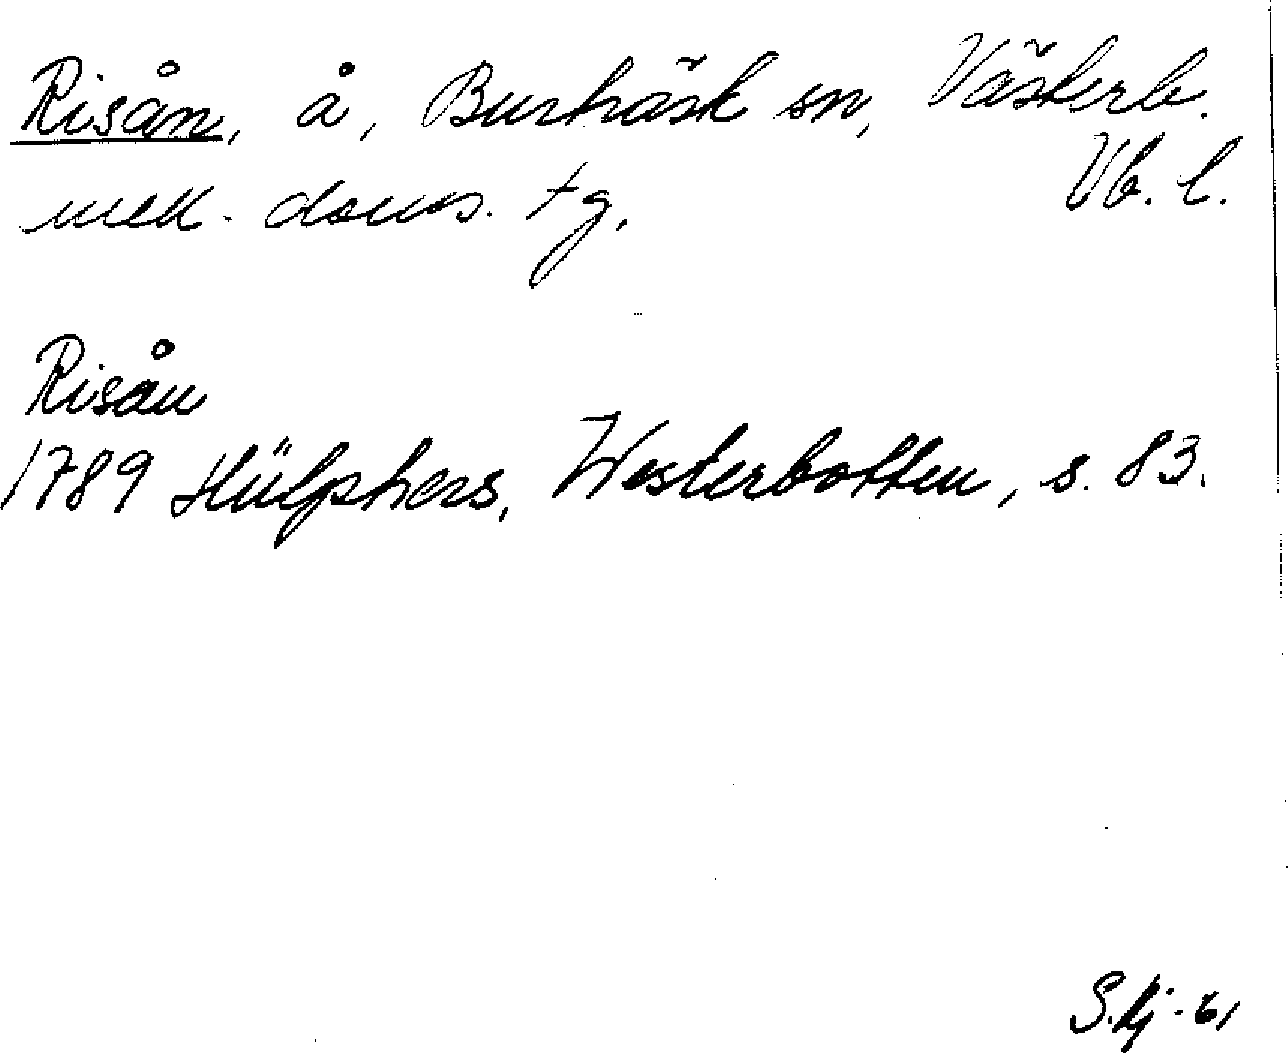 Risån, å, Burträsk sn, Västerb.
mell. doms. tg. Vb. l.
Risån
1789 Hülphers, Westerbotten, s. 83.
S. Hj -61